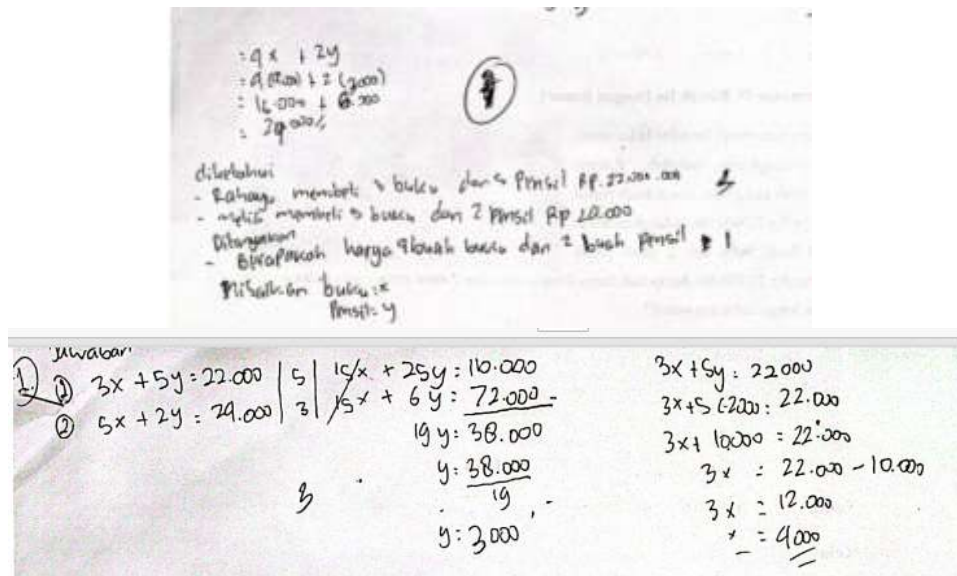 = 4x + 2y
= 4 (4000) + 2 (2000)
= 16.000 + 6.000
diketahui
- Rahayu membeli 3 buku dan 5 Pensil RP. 22.000.00
3
- membeli 5 buku dan 2 Pensil Rp
Ditanyakan
- harga 4 buah buku dan 2 buah Pensil 1
Misalkan buku = x
Pensil = y
Jawaban
1. ① 3x + 5y = 22.000 | 5 | 15x + 25y = 110.000
② 5x + 2y = 24.000 | 3 | 15x + 6y = 72.000 -
19y = 38.000
y = 38.000
19
y = 3000
3
3x + 5y = 22000
3x + 5 (2000 = 22.000
3x + 10.000 = 22.000
3x = 22.000 - 10.000
3x = 12.000
x = 4000